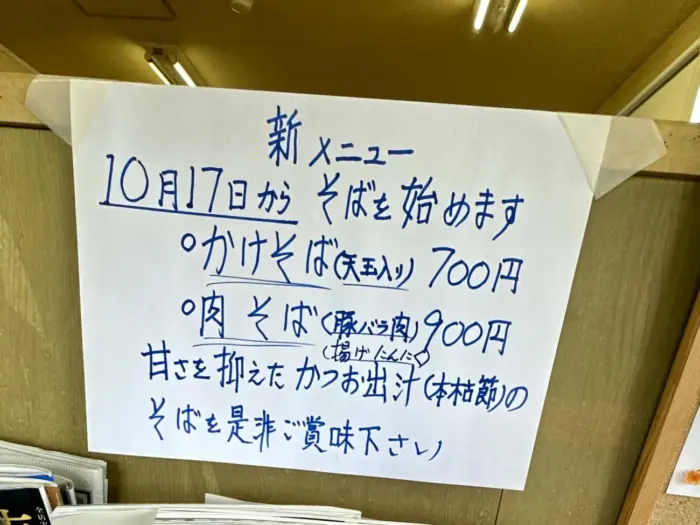 新メニュー
10月17日から そばを始めます
○かけそば(天玉入り) 700円
○肉そば(豚バラ肉) 900円
(揚げにんにく)
甘さを抑えたかつお出汁(本枯節)の
そばを是非ご賞味下さい